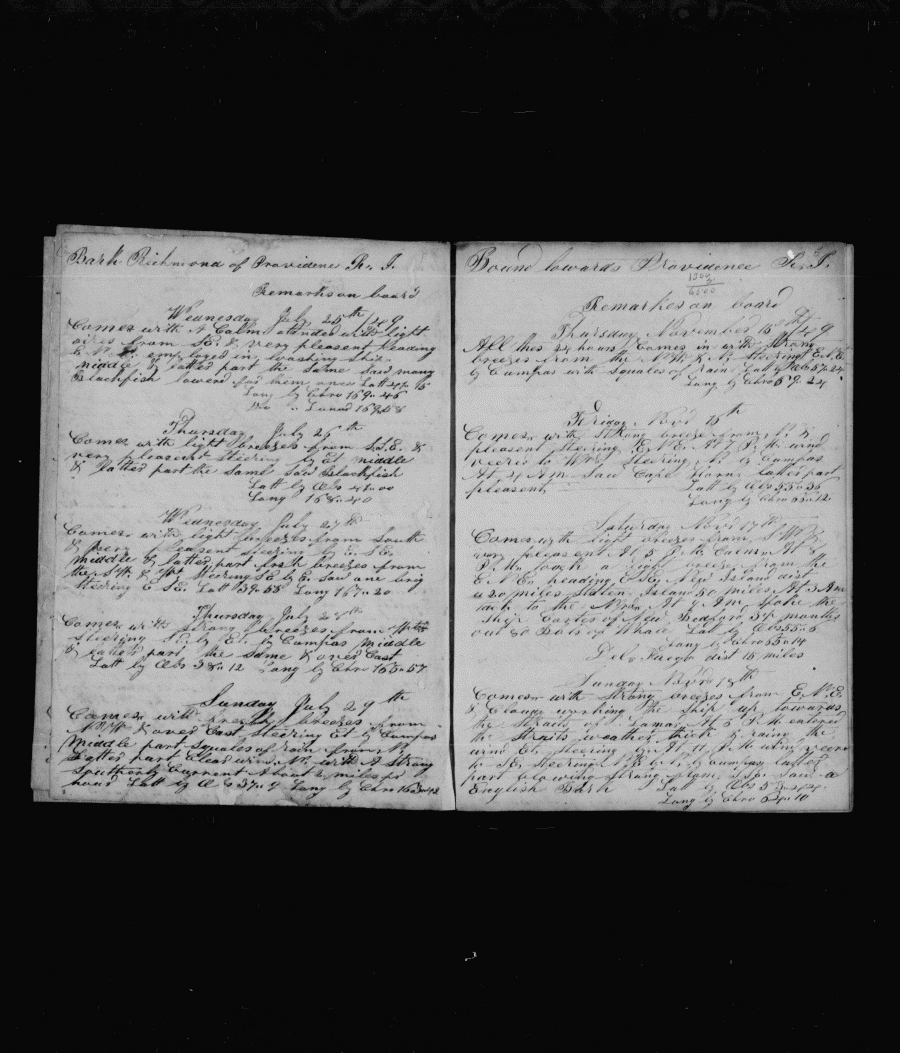 Bark Richmond of Providence R. I.
Remarks on board
Wednesday July 25th 1849
Comes with A Calm attended with light
aires from SE. & very pleasent heading
E.N.E. employed in washing ship
middle & latter part the same saw many
Blackfish lowered for them once Latt 41. 15
Long by Chro 169. 46
Do " Lunar 169. 58
Thursday July 26th
Comes with light breezes from S.S.E. &
very pleasent Steering by Et middle
& latter part the same Saw Blackfish
Latt by Obs 41.00
Long 168.40
Wednesday July 27th
Comes with light breezes from South
& very pleasent steering by E. SE.
middle & latter part fresh breezes from
the SW & Wt Steering SE by E. Saw one brig
steering E SE. Latt 39.58 Long 167.20
Thursday July 28th
Comes with strong breezes from
steering SE. by Et. by Compas middle
& latter part the same & over Cast
Latt by Obs 38.12 Long by Chro 165.57
Sunday July 29th
Comes with fresh breezes from
N.W & over Cast steering Et by Compas
Middle part Squales of rain from N
Latter part Clear wind Nt. with A Strong
Southerly Current About 2 miles pr
hour Latt by Obs 37. 9 Long by Chro 163.42
Bound towards Providence R. I.
1200
5
6000
Remarkes on board
Thursday November 15th 1849
All thes 24 hours Comes in with Strong
breezes from the NW & N. Steering E.N.E.
by Compas with squales of rain Latt by Obs 57.24
Long by Chro 69. 24
Friday Novr 16th
Comes with Strong breeze from
pleasent steering E.N.E. At P.M. wind
veered to W steering N. by Compas
At 4 A m Saw Cape Horn Latter part
pleasent Latt by Obs 55.56
Long by Chro 65.12
Saturday Novr 17th
Comes with light breezes from S W &
very pleasent At 5 P. M. Calm At 8
P. M. took a light breeze from the
E.N.E. heading S SE. New Island dist
20 miles Staten Island 50 miles At 3 Am
tack to the Nrd At 9 Am Spoke the
Ship Cortes of New Bedford 54 months
out 80 Bbls of Whale Latt by Obs 55.6
Long by Chro 65.
Del Fuego dist 15 miles
Sunday Novr 18th
Comes with strong breezes from E.N.E.
& Cloudy working the ship up towards
the Straits of Lamar At 5 P. M. entered
the Straits weather thick & rainy the
wind Et. steering At 11 P. M. wind veered
to SE. Steering N by E. by Compas latter
part blowing strong 7 am Saw a
English Bark Latt by Obs 53.24
Long by Chro 64. 10